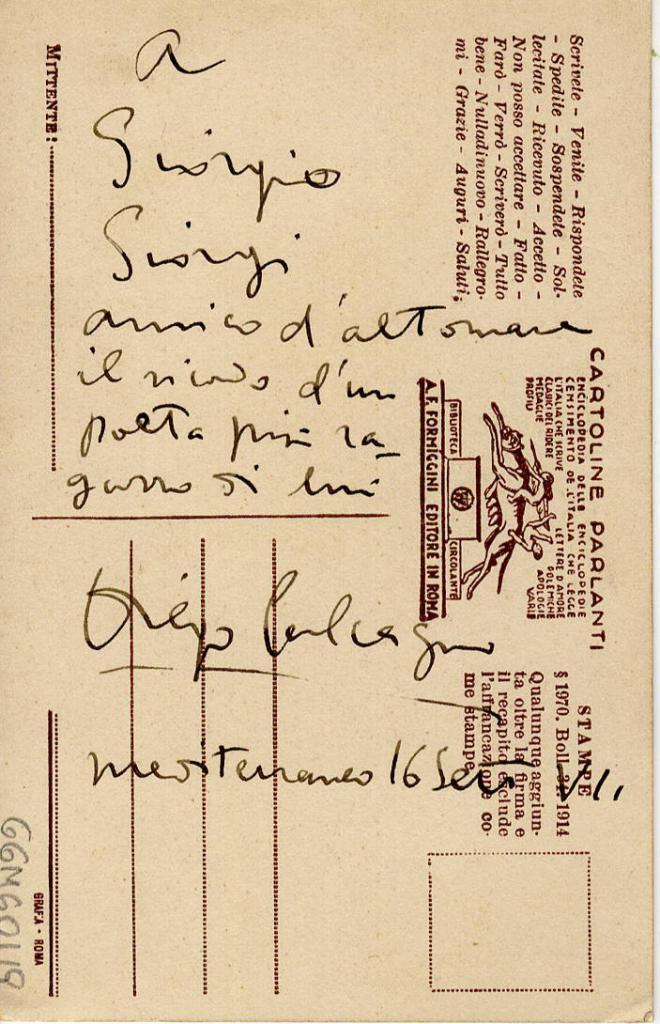 A
Giorgio
Giorgi
amico d'altomare
il ricordo d'un
poeta più ra-
gazzo di lui
Diego Calcagno
mediterraneo 16 Sett.
MITTENTE:
Scrivete - Venite - Rispondete
- Spedite - Sospendete - Sol-
lecitate - Ricevuto - Accetto -
Non posso accettare - Fatto -
Farò - Verrò - Scriverò - Tutto
bene - Nulladinuovo - Rallegro-
mi - Grazie - Auguri - Saluti,
CARTOLINE PARLANTI
ENCICLOPEDIA DELLE ENCICLOPEDIE
CENSIMENTO DE L'ITALIA CHE LEGGE
L'ITALIA CHE SCRIVE LETTERE D'AMORE
CLASSICI DEL RIDERE POLEMICHE
MEDAGLIE APOLOGIE
PROFILI VARIE
BIBLIOTECA CIRCOLANTE
A. F. FORMIGGINI EDITORE IN ROMA
STAMPE
§ 1970. Boll. 34, 1914
Qualunque aggiun-
ta oltre la firma e
il recapito esclude
l'affrancazione co-
me stampe
GRAFIA - ROMA
GGMG0119